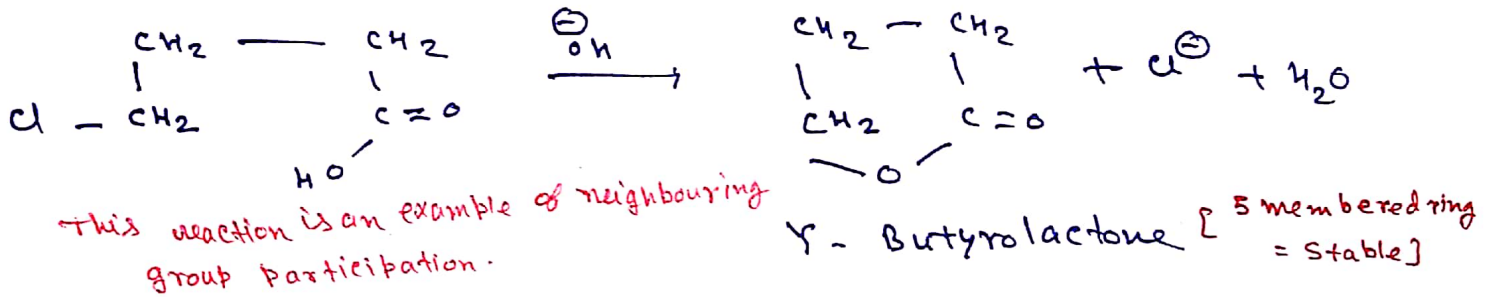 CH2 — CH2 ⊖OH CH2 — CH2
Cl — CH2 C=O → CH2 C=O + Cl⊖ + H2O
HO O
This reaction is an example of neighbouring
group participation.
γ - Butyrolactone [ 5 membered ring
= Stable]